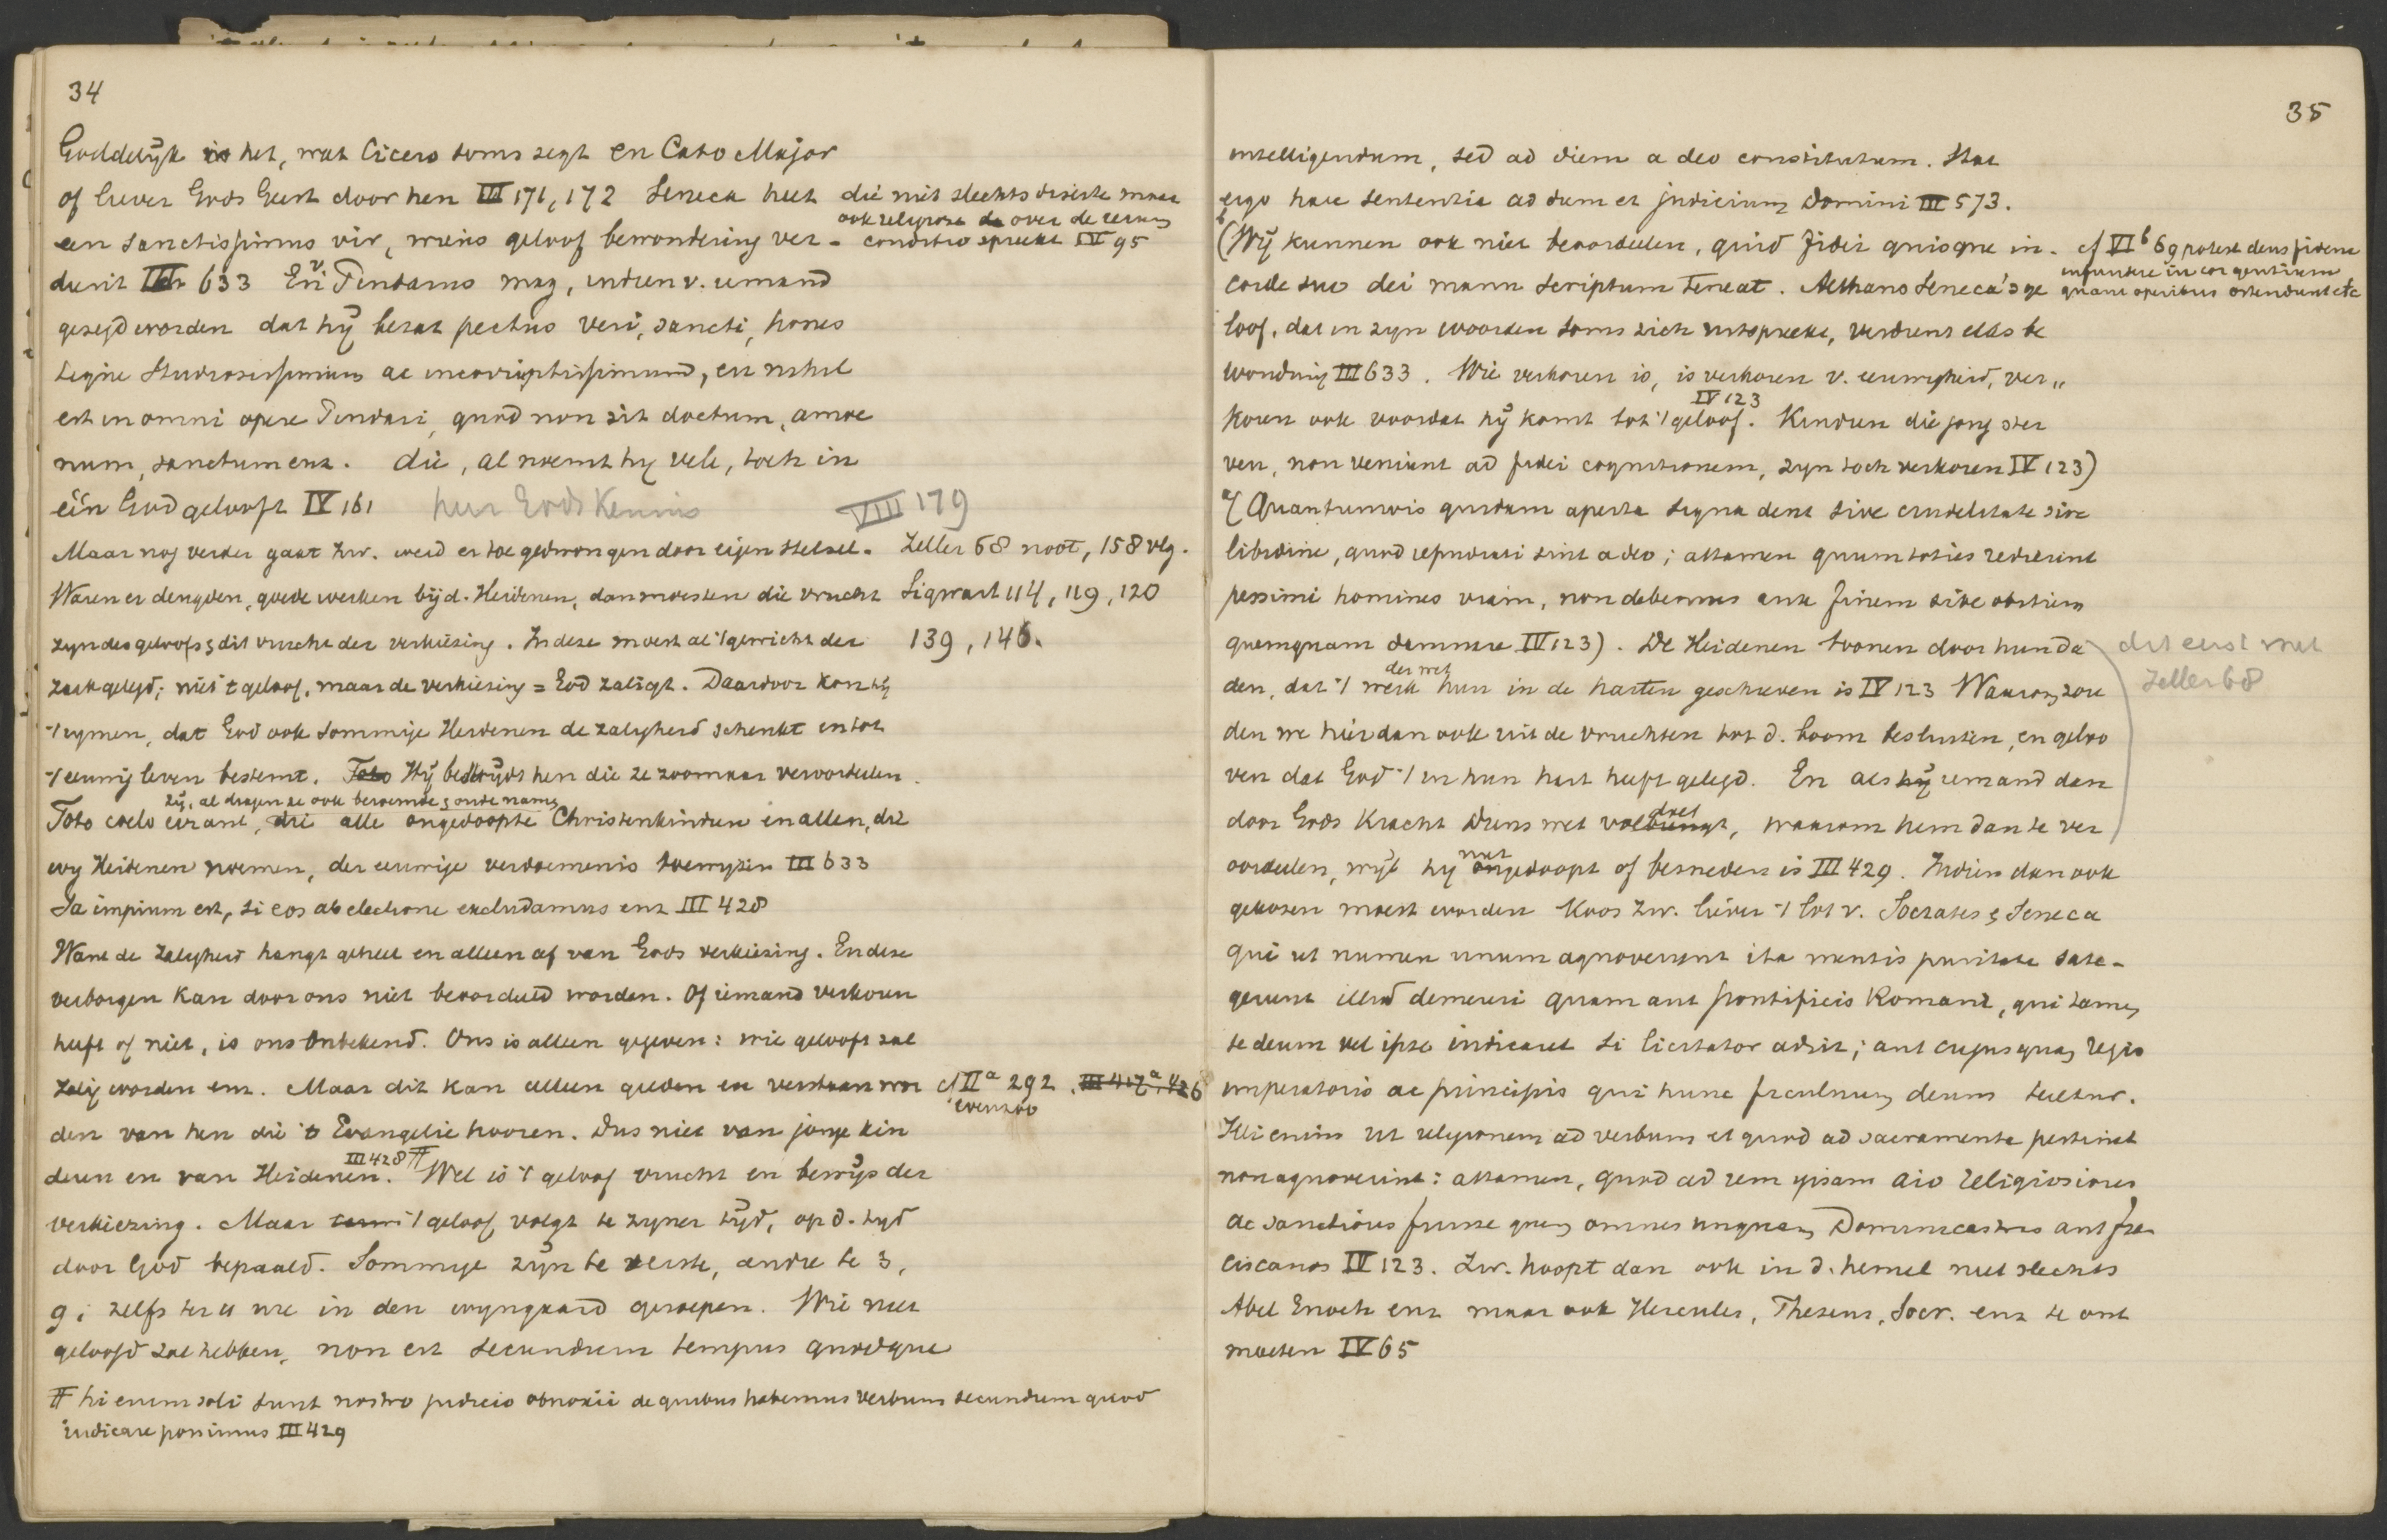 34
Goddelijk is het, wat Cicero soms zegt en Cato Major
of liever Gods Geest door hen III 171, 172 Seneca heet
die niet slechts diserte maar
ook religiose de over de rerum
conditio spreekt IV 95
een sanctissimus vir, wiens geloof bewondering ver-
dient III 633 En v Pindarus mag, indien v. iemand
gezegd worden dat hij bezat pectus veri, sancti, hones
tique studiosissimum ac incorruptissimum, en nihil
est in omni opere Pindari, quod non sit doctum, amoe
num, sanctum enz. die, al noemt hij vele, toch in
één God gelooft IV 161 hun Gods Kennis VIII 179
Maar nog verder gaat Zw. werd er toe gedwongen door eigen stelsel. Zeller 68 noot, 158 vlg.
Waren er deugden, goede werken bij d. Heidenen, dan moesten die vrucht Sigwart 114, 119, 120
zyn des geloofs & dit vrucht der verkiezing. In deze moest al 't gewicht der 139, 146.
zaak gelegd; niet 't geloof, maar de verkiezing = God zaligt. Daardoor kon hij
't rymen, dat God ook sommige Heidenen de zaligheid schenkt en tot
't eeuwig leven bestemt. Toto Hij bestrijdt hen die ze zoomaar veroordeelen.
zij, al dragen ze ook beroemde & oude namen
Toto coelo errant, die alle ongedoopte Christenkinderen en allen, die
wy Heidenen noemen, der eeuwige verdoemenis toewyzen III 633
Ja impium est, si eos ab electione excludamus enz III 428
Want de zaligheid hangt geheel en alleen af van Gods verkiezing. En deze
verborgen kan door ons niet beoordeeld worden. Of iemand verkoren
heeft of niet, is ons onbekend. Ons is alleen gegeven: wie gelooft zal
zalig worden enz. Maar dit kan alleen gelden en verstaan wor cf IIa 292. III 417a. 426
evenzoo
den van hen die 't Evangelie hooren. Dus niet van jonge kin
deren en van Heidenen. III 428 # Wel is 't geloof vrucht en bewijs der
verkiezing. Maar 't geloof volgt te zyner tijd, op d. tyd
door God bepaald. Sommige zijn te eerste, andre te 3,
9, zelfs ter 11 ure in den wyngaard geroepen. Wie niet
geloofd zal hebben, non est secundum tempus quodque
# hi enim soli sunt nostro judicio obnoxii de quibus habemus verbum secundum quod
iudicare possimus III 429
35
intelligendum, sed ad diem a deo constitutum. Stat
ergo haec sententia ad dum et judicium Domini III 573.
b
(Wij kunnen ook niet beoordeelen, quid fidei quisque in. cf VIb 69 potest deus fidem
infundere in cor gentium
quam operibus ostendunt etc
corde suo dei manu scriptum teneat. Althans Seneca's ge
loof, dat in zyn woorden soms zich uitspreekt, verdient elks be
wondring III 633. Wie verkoren is, is verkoren v. eeuwigheid, ver„
koren ook voordat hij komt tot 't geloof. IV 123 Kinderen die jong ster
ven, non veniunt ad fidei cognitionem, zyn toch verkoren IV 123)
a( Quantumvis quidam aperta signa dent sive crudelitate sive
libidine, quod repudiati sint a deo; attamen quum toties redierint
pessimi homines viam, non debemus ante finem sive obitum
quemquam damnare IV 123). De Heidenen toonen door hun da dit eerst met
Zeller 68
den, dat 't werk der wet hun in de harten geschreven is IV 123 Waarom zou
den we hier dan ook uit de vruchten tot d. boom besluiten, en geloo
ven dat God 't in hun hart heeft gelegd. En als hij iemand dan
door Gods Kracht Diens wet volbrengt doet, waarom hem dan te ver
oordeelen, wijl hy niet ongedoopt of besneden is III 429. Indien dan ook
gekozen moest worden Koos Zw. liever 't lot v. Socrates & Seneca
qui ut numen unum agnoverunt ita mentis puritate sate-
gerunt illud demereri quam aut pontificis Romani, qui tamen
se deum vel ipse indicaret si licitator adsit; aut cujusquam regis
imperatoris ac principis qui hunc ficulnum deum tuetur.
Illi enim ut religionem ad verbum et quod ad sacramenta pertinet
non agnoverint: attamen, quod ad rem ipsam aio religiosiores
ac sanctiores fuisse quam omnes unquam Dominicastros aut fran
ciscanos IV 123. Zw. hoopt dan ook in d. hemel niet slechts
Abel Enoch enz maar ook Hercules, Theseus, Socr. enz te ont
moeten IV 65